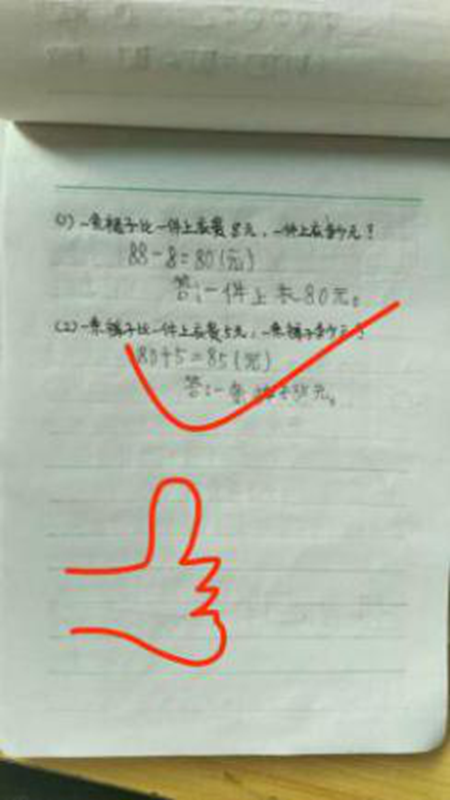 (1) 一条裙子比一件上衣贵8元，一件上衣多少元？
88-8=80(元)
答：一件上衣80元。
(2) 一条裤子比一件上衣贵5元，一条裤子多少元？
80+5=85(元)
答：一条裤子85元。